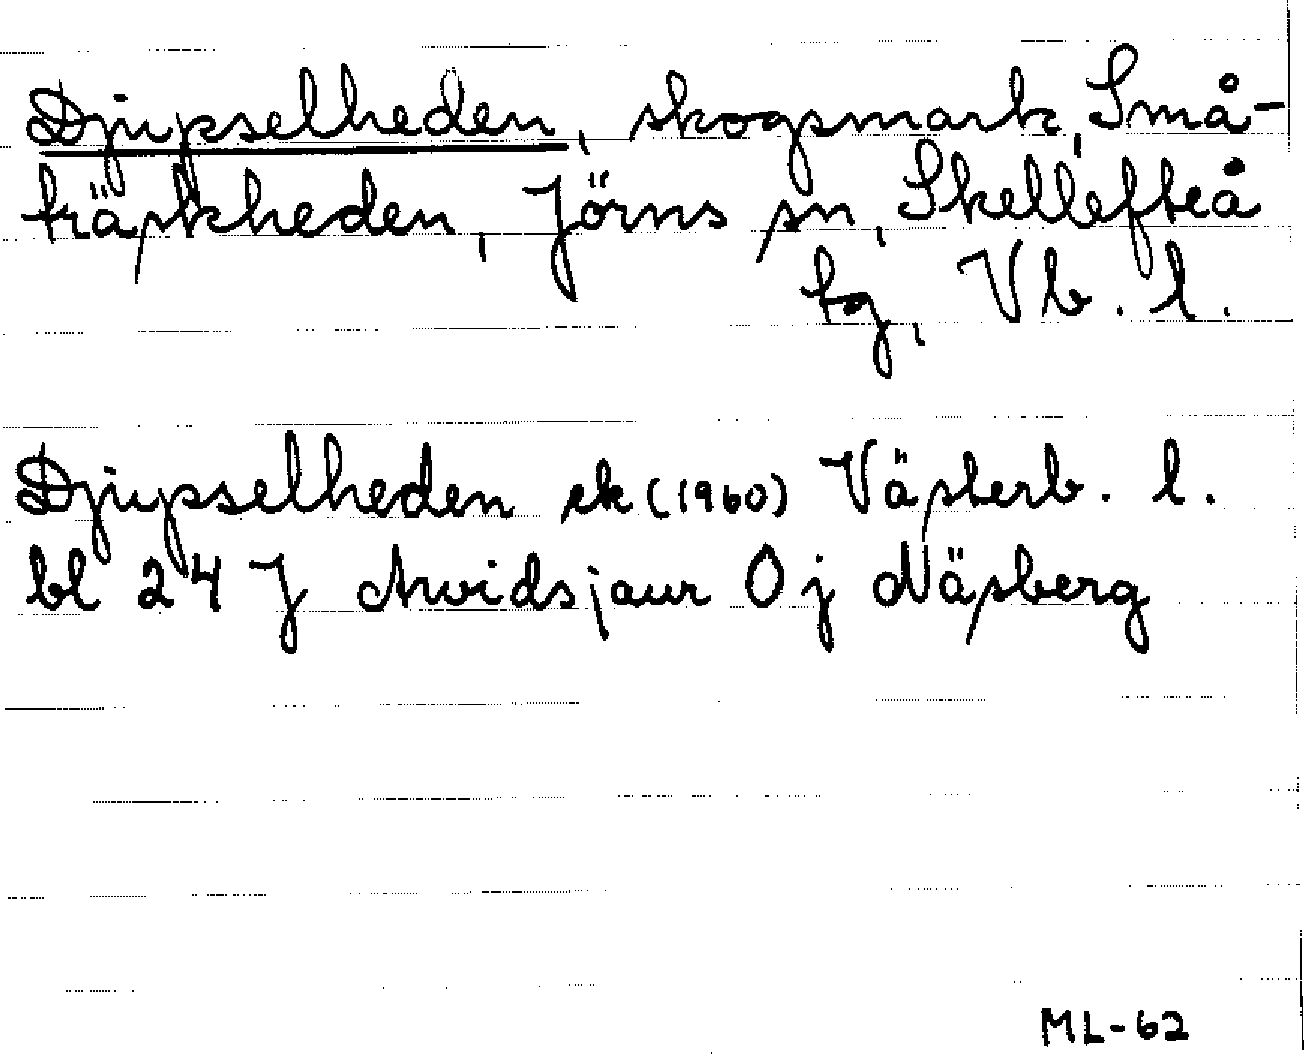 Djupselheden, skogsmark, Små-
träskheden, Jörns sn, Skellefteå
tg, Vb. l.
Djupselheden ek (1960) Västerb. l.
bl 24 J Arvidsjaur 0 j Näsberg
ML-62